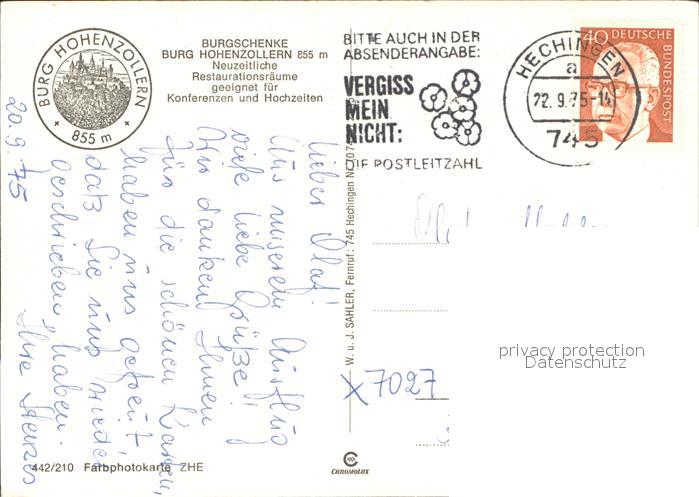 BURG HOHENZOLLERN
855 m
BURGSCHENKE
BURG HOHENZOLLERN 855 m
Neuzeitliche
Restaurationsräume
geeignet für
Konferenzen und Hochzeiten
BITTE AUCH IN DER
ABSENDERANGABE:
VERGISS
MEIN
NICHT:
DIE POSTLEITZAHL
HECHINGEN
a
22.9.75-14
745
40 DEUTSCHE
BUNDESPOST
20.9.75
Lieber Olaf!
Aus unserem Ausflug
viele liebe Grüße!
Wir danken Ihnen
für die schönen Karten,
haben uns gefreut,
daß Sie uns wieder
geschrieben haben.
Ihre
W. u. J. SAHLER, Fernruf: 745 Hechingen Nr.
x7027
privacy protection
Datenschutz
442/210 Farbphotokarte ZHE
CHROMOLUX